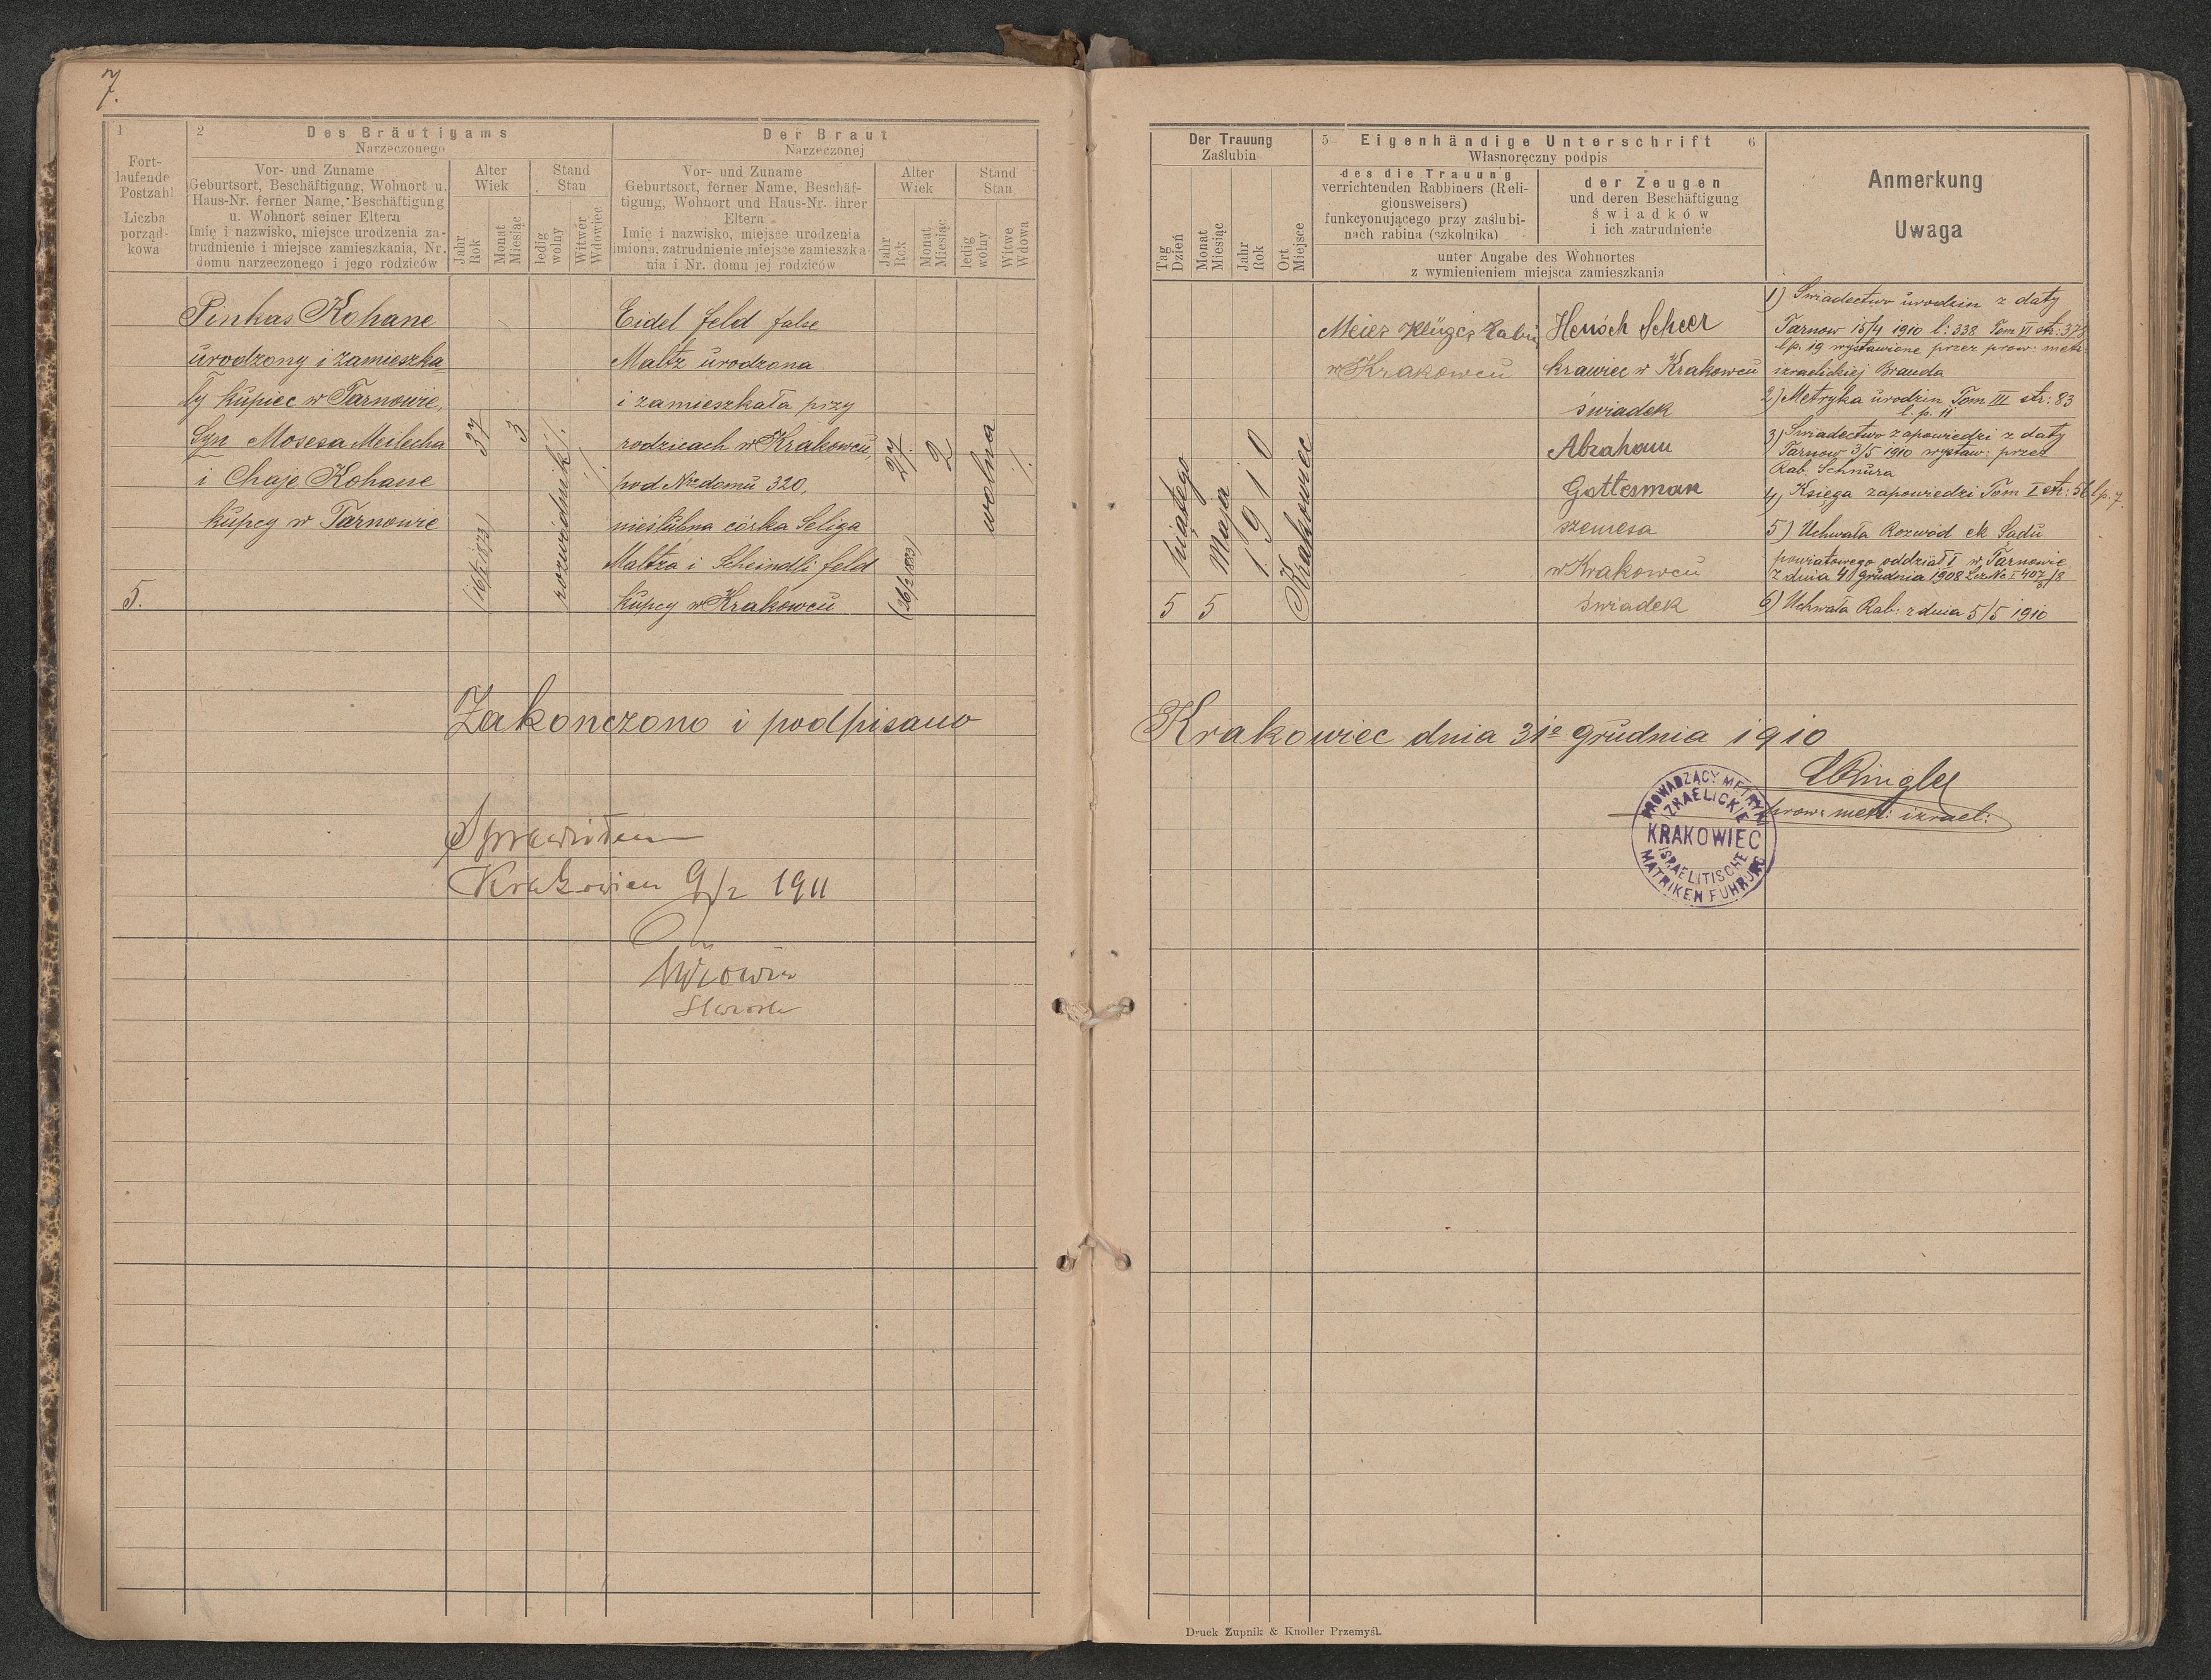 7.
1
Fort-
laufende
Postzahl
Liczba
porząd-
kowa
2
Des Bräutigams
Narzeczonego
Vor- und Zuname
Geburtsort, Beschäftigung, Wohnort u.
Haus-Nr. ferner Name, Beschäftigung
u. Wohnort seiner Eltern
Imię i nazwisko, miejsce urodzenia za-
trudnienie i miejsce zamieszkania, Nr.
domu narzeczonego i jego rodziców
Alter
Wiek
Jahr
Rok
Monat
Miesiąc
Stand
Stan
ledig
wolny
Witwer
Wdowiec
Der Braut
Narzeczonej
Vor- und Zuname
Geburtsort, ferner Name, Beschäf-
tigung, Wohnort und Haus-Nr. ihrer
Eltern
Imię i nazwisko, miejsce urodzenia
imiona, zatrudnienie miejsce zamieszka-
nia i Nr. domu jej rodziców
Alter
Wiek
Jahr
Rok
Monat
Miesiąc
Stand
Stan
ledig
wolny
Witwe
Wdowa
5.
Pinkas Kohane
urodzony i zamieszka
ły kupiec w Tarnowie,
Syn Mosesa Meilecha
i Chaje Kohane
kupcy w Tarnowie
37
3
rozwódnik
Eidel Feld false
Maltz urodzona
i zamieszkała przy
rodzicach w Krakowcu,
pod Nro domu 320,
nieślubna córka Seliga
Maltza i Scheindli Feld
kupcy w Krakowcu
27
2
wolna
Zakonczono i podpisano
Sprawdziłem
Krakowiec 9/2 1911
Starosta
Der Trauung
Zaślubin
Tag
Dzień
Monat
Miesiąc
Jahr
Rok
Ort
Miejsce
5 Eigenhändige Unterschrift 6
Własnoręczny podpis
des die Trauung
verrichtenden Rabbiners (Reli-
gionsweisers)
funkcyonującego przy zaślubi-
nach rabina (szkolnika)
der Zeugen
und deren Beschäftigung
świadków
i ich zatrudnienie
unter Angabe des Wohnortes
z wymienieniem miejsca zamieszkania
Anmerkung
Uwaga
piątego
5
Maja
5
1910
Krakowiec
Meier Klüger Rabin
w Krakowcu
Henóch Scheer
krawiec w Krakowcu
świadek
Abraham
Gottesman
szemesa
w Krakowcu
świadek
1) Swiadectwo urodzin z daty
Tarnow 15/4 1910 l: 338 Tom VI str: 378
lp. 19 wystawione przez prow: metr.
izraelickiej Branda
2) Metryka urodzin Tom III str: 83
l. p. 11
3) Swiadectwo zapowiedzi z daty
Tarnow 3/5 1910 wystaw: przez
Rab. Schnura
4) Księga zapowiedzi Tom I str: 56 lp. 7
5) Uchwała Rozwód ck Sądu
powiatowego oddział I w Tarnowie
z dnia 4 grudnia 1908
6) Uchwała Rab: z dnia 5/5 1910
Krakowiec dnia 31go grudnia 1910
prow: metr: izrael:
PROWADZĄCY METRYKI
IZRAELICKIE
KRAKOWIEC
ISRAELITISCHE
MATRIKEN FÜHRUNG
Druck Zupnik & Knoller Przemyśl.